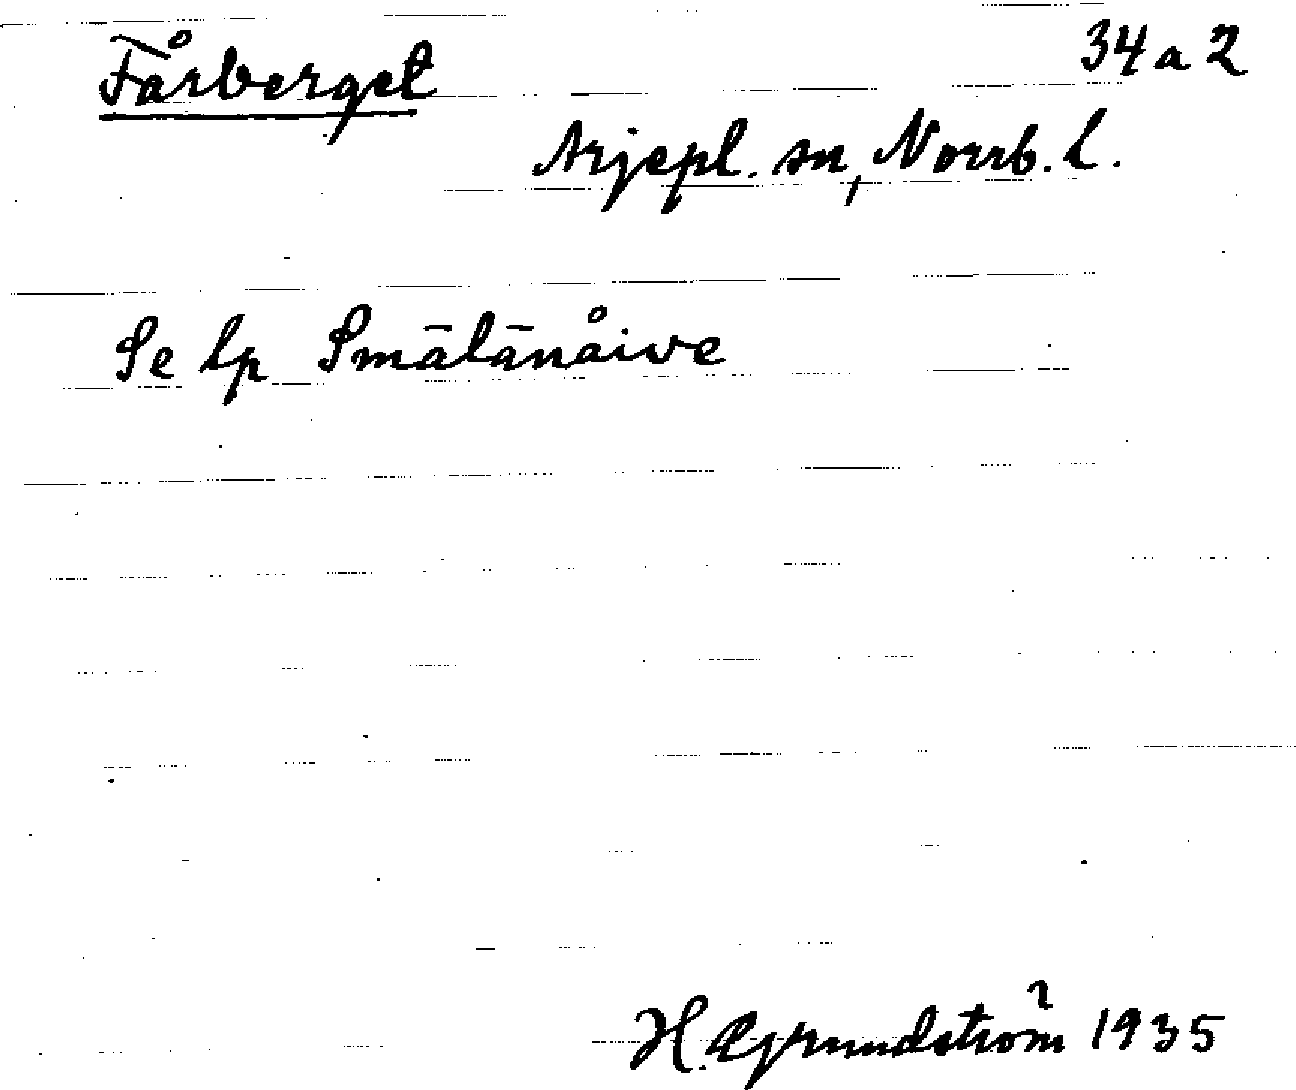 Fårberget 34 a 2
Arjepl. sn, Norrb. L.
Se Lp Smālānåive
H. Grundström 1935